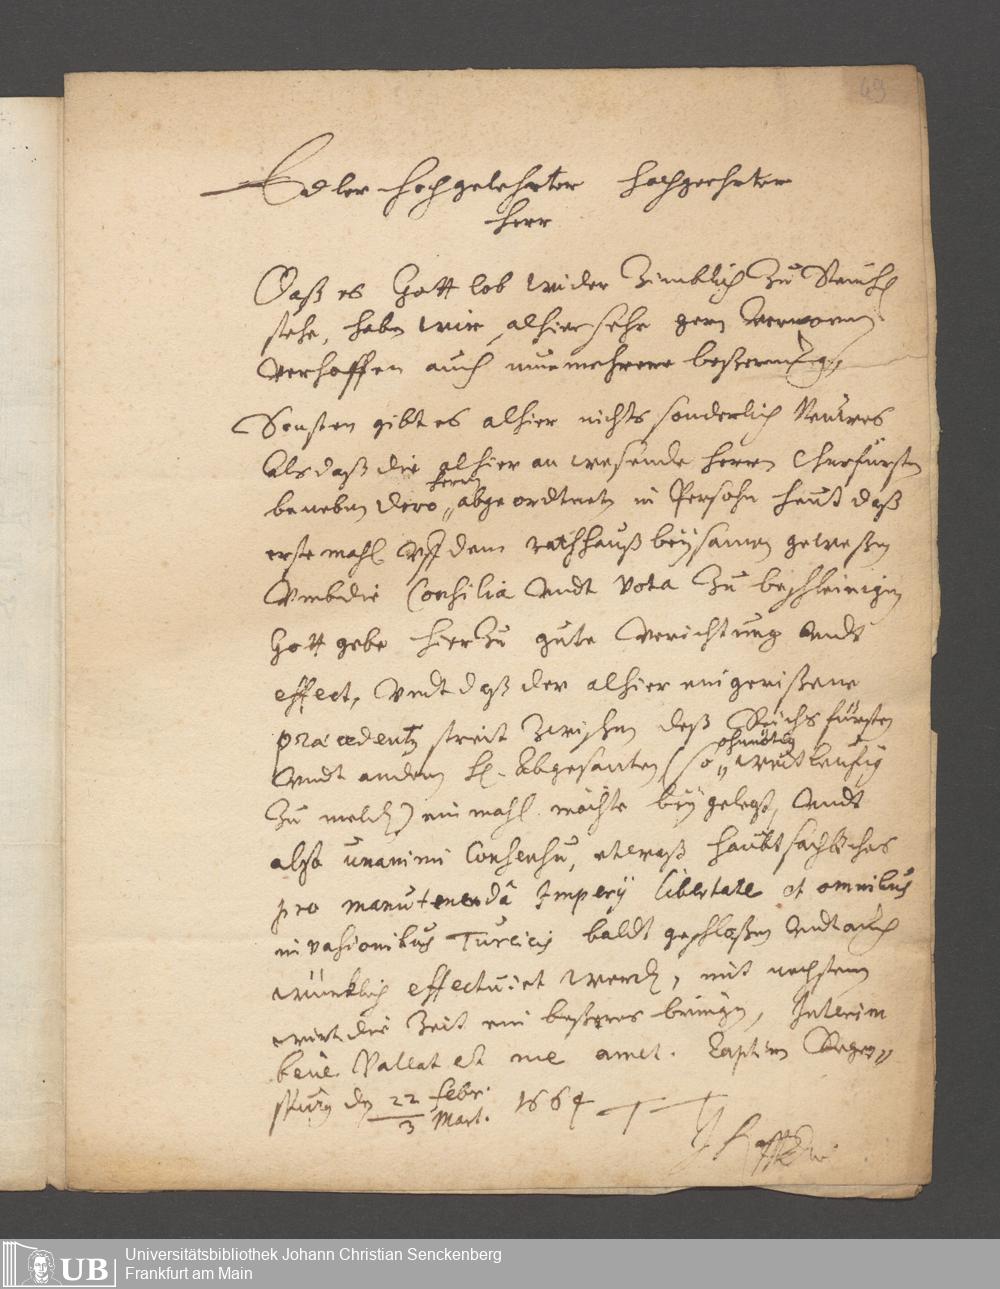 49
Edler Hochgelehrter Hochgeehrter
Herr
Daß es Gott lob wider Zimblich Zu
stehe, haben wir alhier sehr gern vernommen
verhoffen auch nunmehrer
Sonsten gibt es alhier nichts sonderlich Neuwes
als daß die alhier anwesende Herrn Churfürsten
beneben dero abgeordtneten in Persohn heut daß
Herrn
erste mahl uff dem rathhauß beysamen geweßen
Umb die Consilia undt vota Zu beschleinigen
Gott gebe hierZu gute verrichtung undt
effect, undt daß der alhier eingerißene
præcedentz streit Zwischen deß Reichs fürsten
undt andern H. Abgesanten (so weitleufig
ohnnötig
Zu melden) einmahl möchte beygelegt, undt
also unanimi Consensu, etwaß haubtsächliches
pro manutenendâ Imperÿ libertate et omnibus
invasionibus Turcicis baldt geschloßen undt auch
würcklich effectuiret werden, mit nechstem
wirt die Zeit ein beßeres bringen, Interim
bene Valleat et me amet. Raptim Regen„
spurg den 22 Febr. 1664
3 Mart.
Universitätsbibliothek Johann Christian Senckenberg
Frankfurt am Main
UB